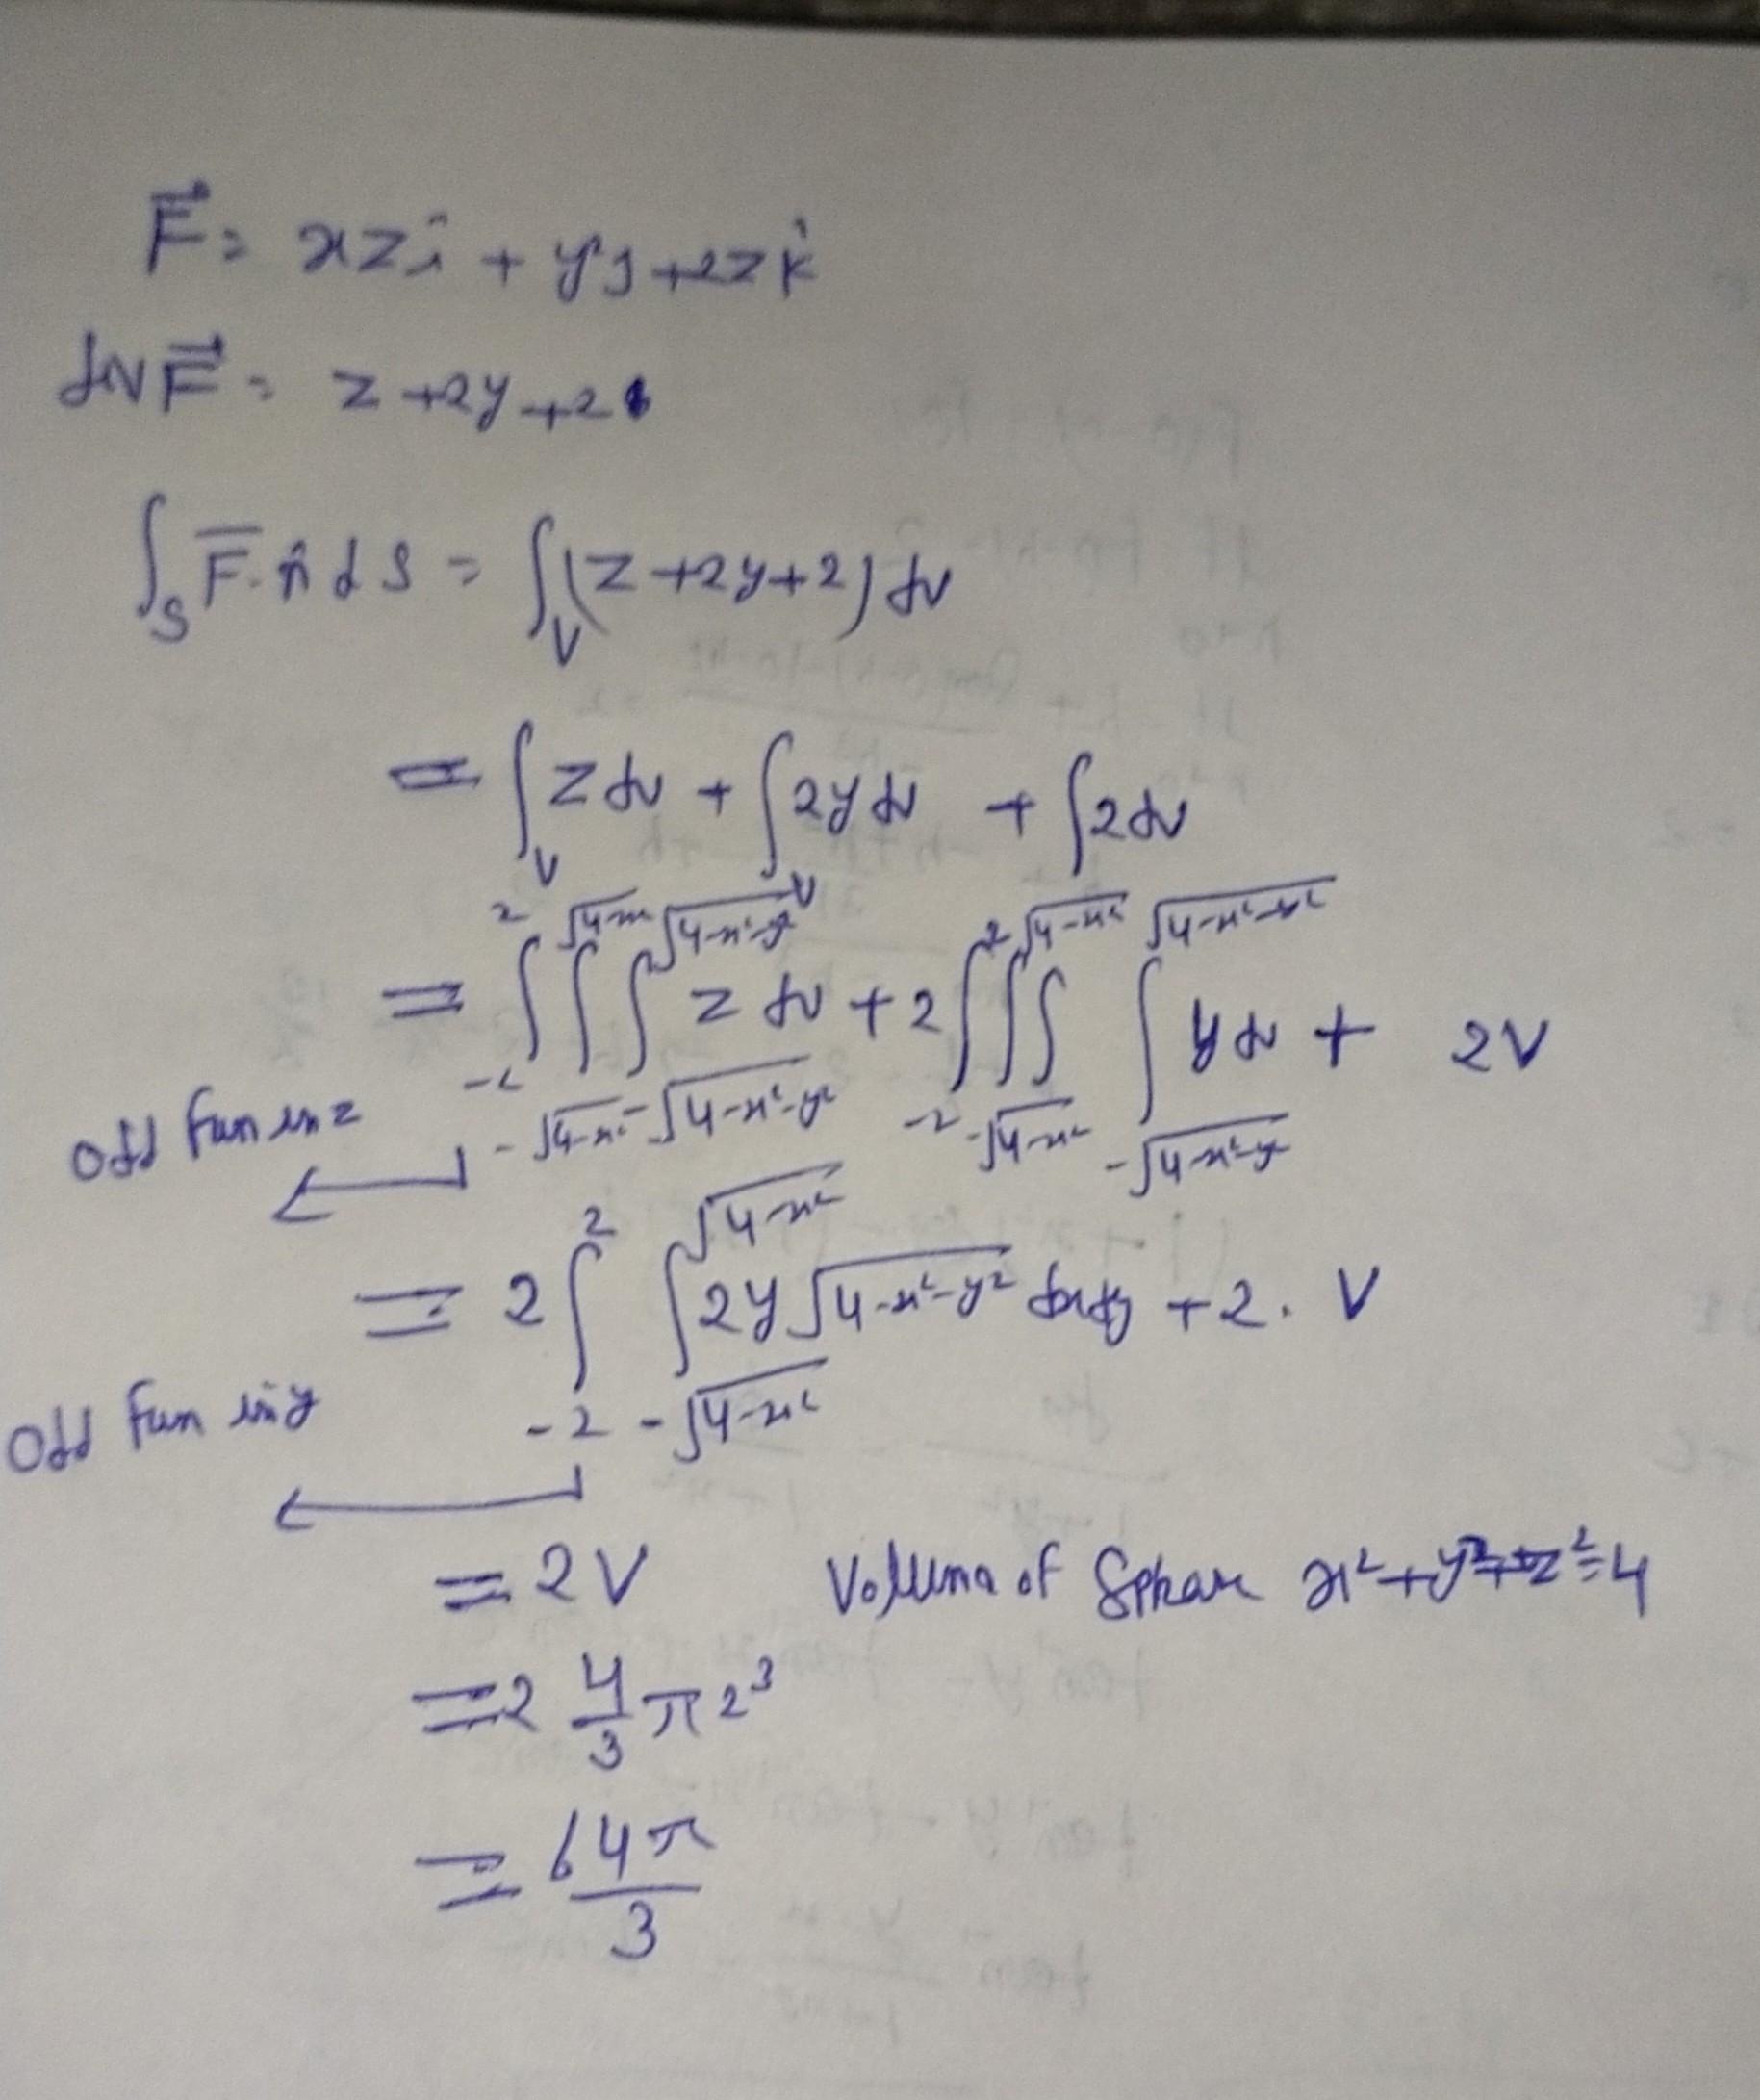 F⃗ = xz î + yj + 2z k̂
div F⃗ = z + 2y + 2
∫_S F̅.n̂ dS = ∫_V (z + 2y + 2) dv
= ∫_V z dv + ∫_V 2y dv + ∫ 2dv
= ∫_{-2}^{2} ∫_{-√(4-x²)}^{√(4-x²)} ∫_{-√(4-x²-y²)}^{√(4-x²-y²)} z dv + 2 ∫_{-2}^{2} ∫∫_{-√(4-x²)}^{√(4-x²)} ∫_{-√(4-x²-y²)}^{√(4-x²-y²)} y dv + 2V
Odd fun in z ←
= 2 ∫_{-2}^{2} ∫_{-√(4-x²)}^{√(4-x²)} 2y √(4-x²-y²) dxdy + 2. V
Odd fun in y ←
= 2V Volume of Sphare x²+y²+z²=4
= 2 4/3 π 2³
= 64π/3